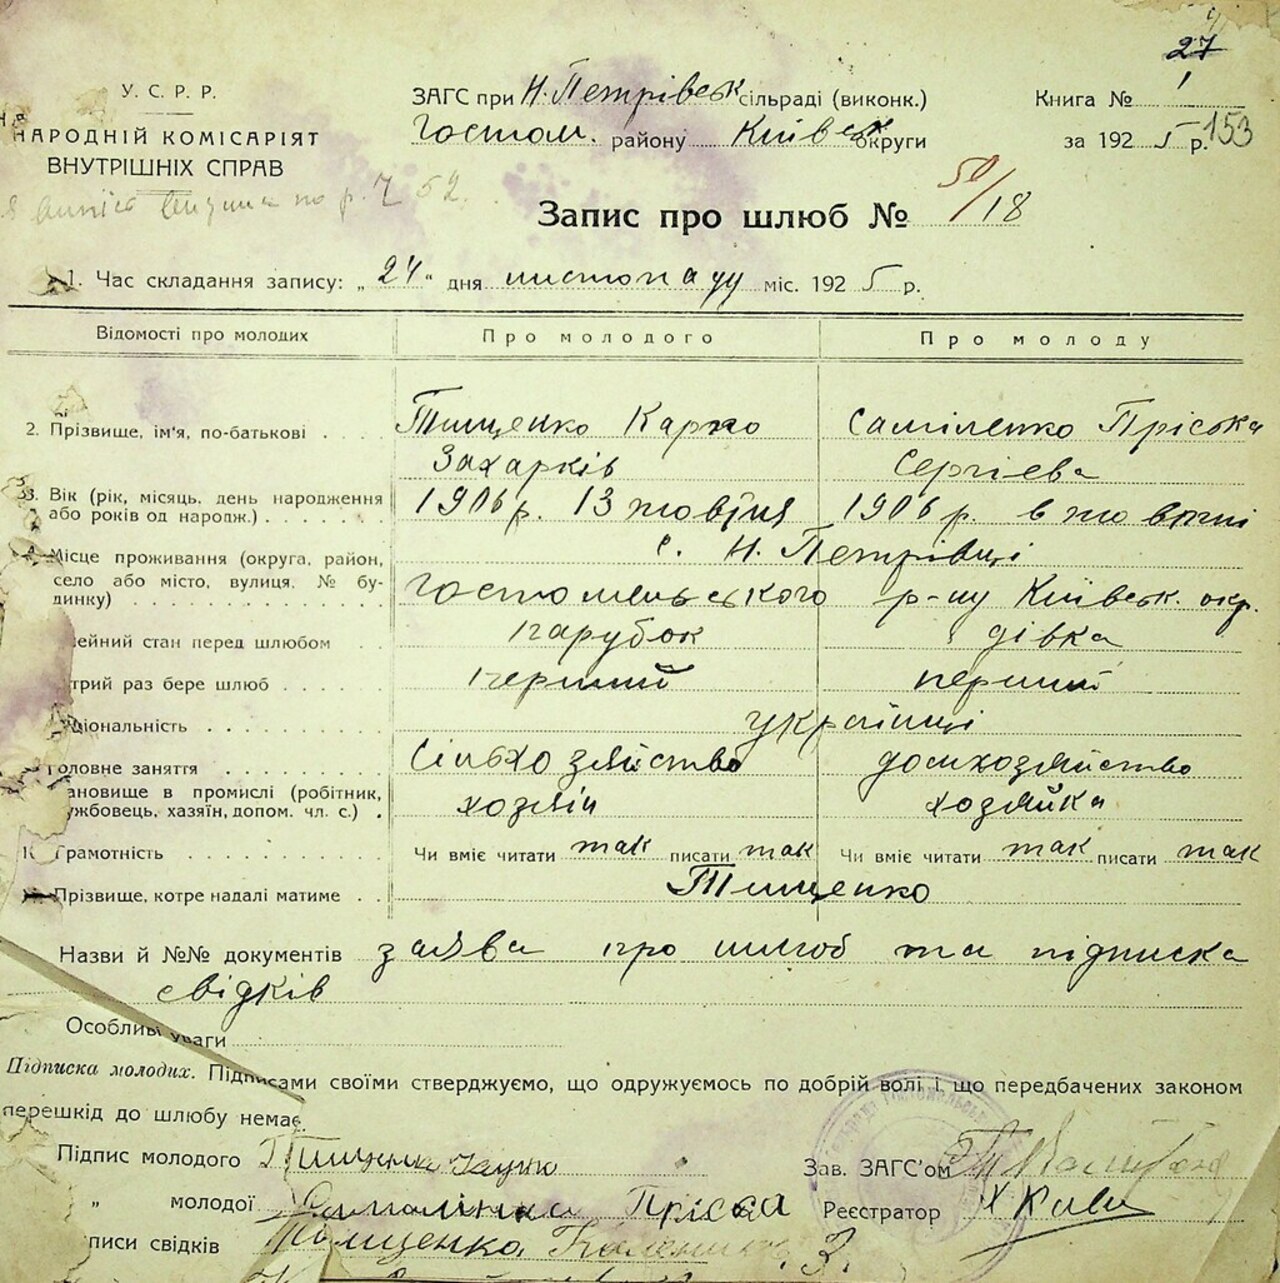 27
У. С. Р. Р.
НАРОДНІЙ КОМІСАРІЯТ
ВНУТРІШНІХ СПРАВ
ЗАГС при Н. Петрівськ сільраді (виконк.)
Гостом. району Київськ округи
Книга № 1
за 1925 р. 153
по р. 7 52.
Запис про шлюб № 50/18
1. Час складання запису: „24“ дня листопаду міс. 1925 р.
Відомості про молодих Про молодого Про молоду
2. Прізвище, ім'я, по-батькові . . . . Тищенко Карпо Саміленко Пріська
Захарків Сергієва
3. Вік (рік, місяць, день народження 1906 р. 13 жовтня 1906 р. в жовтні
або років од народж.) . . . . . . .
с. Н. Петрівці
Місце проживання (округа, район,
село або місто, вулиця. № бу-
динку) . . . . . . . . . . . . . Гостомельського р-ну Київськ. окр.
ейний стан перед шлюбом . . парубок дівка
трий раз бере шлюб . . . . . перший перший
ціональність . . . . . . . . . українці
Головне заняття . . . . . . . . сільхозяйство домхозяйство
ановище в промислі (робітник,
ужбовець, хазяїн, допом. чл. с.) . хозяін хозяйка
Грамотність . . . . . . . . . . Чи вміє читати так писати так Чи вміє читати так писати так
Прізвище, котре надалі матиме . . Тищенко
Назви й №№ документів заява про шлюб та підписка
свідків
Особливі уваги
Підписка молодих. Підписами своїми стверджуємо, що одружуємось по добрій волі і що передбачених законом
перешкід до шлюбу немає.
Підпис молодого Тищенко Зав. ЗАГС'ом
„ молодої Самілінка Пріська Реєстратор
писи свідків Тищенко З.